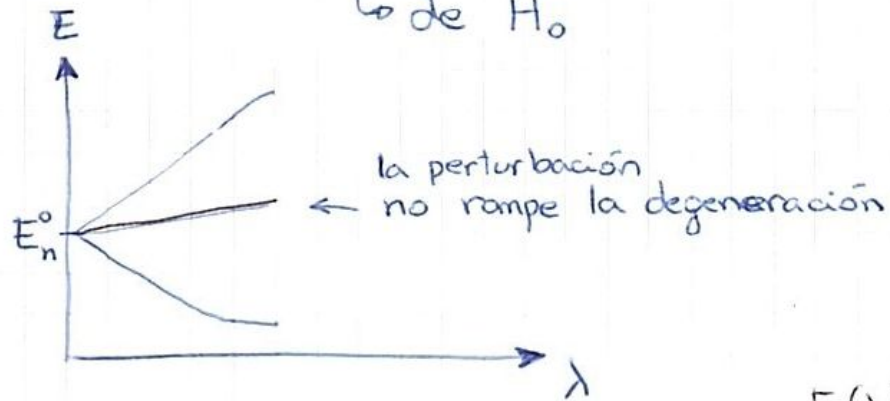 ↳ de H₀
E
la perturbación
Eₙ⁰ ← no rompe la degeneración
λ